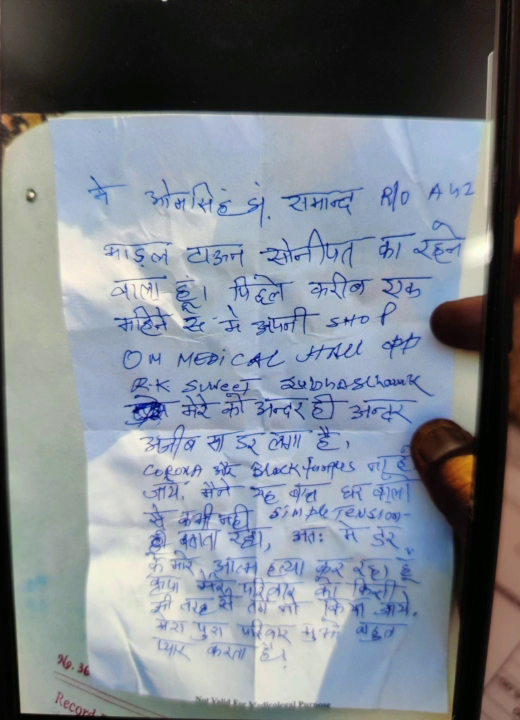 मे ओमसिहं S/o. समान्द R/O A42
माडल टाऊन सोनीपत का रहने
वाला हूं। पिछले करीब एक
महिने से मे अपनी SHOP
OM MEDICAL HALL
R.K SWEET SUBHASCHOWK
मेरे को अन्दर ही अन्दर
अजीब सा डर लगा है,
CORONA और Black fungus ना हो
जाये, मैने यह बात घर वालो
से कभी नही SIMPLE TENSION-
ही बताता रहा, अतः मे डर
के मारे आत्म हत्या कर रहा हूं
कृपा मेरे परिवार को किसी
भी तरह से तंग ना किया जाये.
मेरा पुरा परिवार मुझे बहुत
प्यार करता है।
No. 36
Record
Not Valid For Medicolegal Purpose